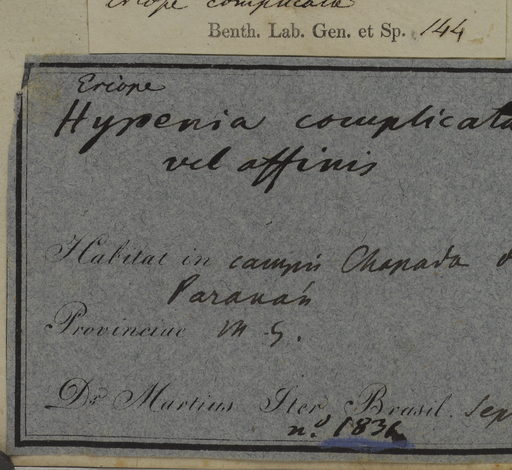 Eriope complicata
Benth. Lab. Gen. et Sp. 144
Eriope
Hypenia complicata
vel affinis
Habitat in campis Chapada d
Paranán
Provinciae M G.
Dr. Martius Iter Brasil. Sep
n.o 1836